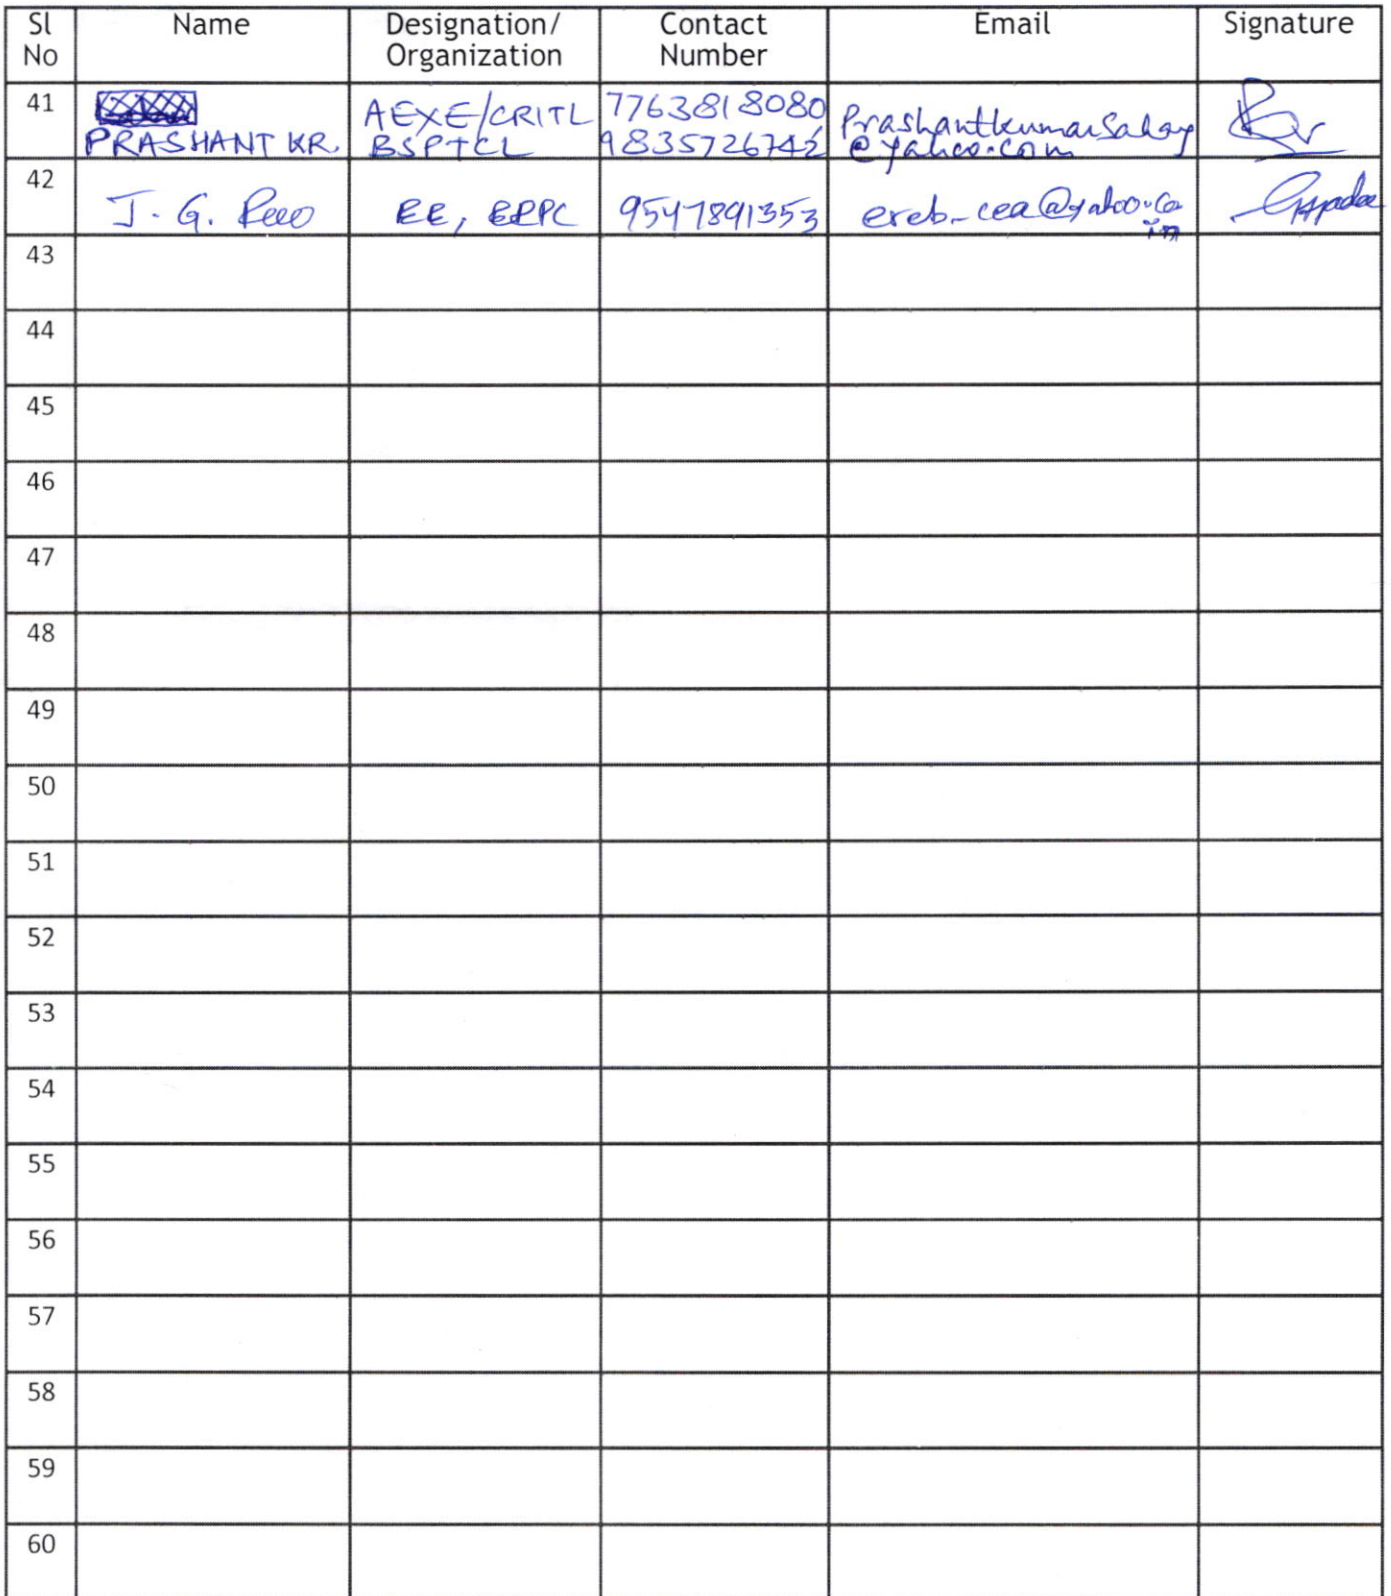 Sl No Name Designation/ Organization Contact Number Email Signature
41 PRASHANT KR. AEXE/CRITL BSPTCL 7763818080 9835726742 Prashantkumarsahay @yahoo.com
42 J. G. Rao EE, ERPC 9547891353 ereb-cea@yahoo.co.in
43
44
45
46
47
48
49
50
51
52
53
54
55
56
57
58
59
60